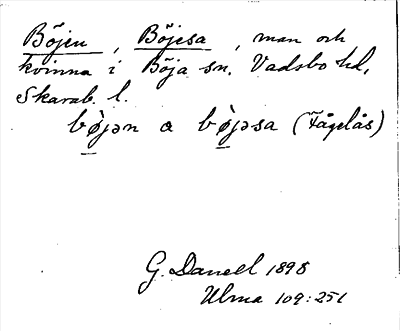 Böjen, Böjesa, man och
kvinna i Böja sn. Vadsbo hd,
Skarab. l.
bø̀jən a bø̀jəsa (Fågelås)
G. Danell 1898
Ulma 109:251